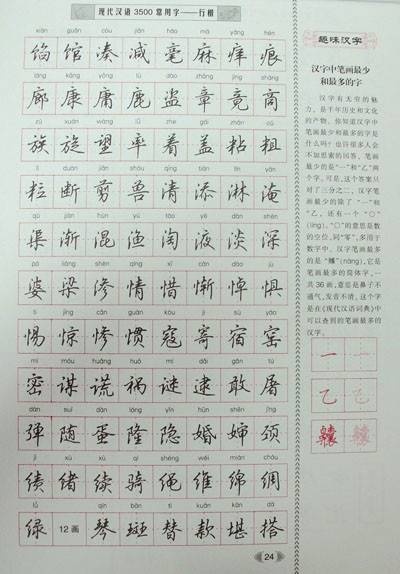 现代汉语3500常用字——行楷
xiàn guǎn còu jiǎn háo má yǎng hén
馅 馆 凑 减 毫 麻 痒 痕
láng kāng yōng lù dào zhāng jìng shāng
廊 康 庸 鹿 盗 章 竟 商
zú xuán wàng shuài zhe gài zhān cū
族 旋 望 率 着 盖 粘 粗
lì duàn jiǎn shòu qīng tiān lín yān
粒 断 剪 兽 清 添 淋 淹
qú jiàn hùn yú táo yè dàn shēn
渠 渐 混 渔 淘 液 淡 深
pó liáng shèn qíng xī cán dào jù
婆 梁 渗 情 惜 惭 悼 惧
tì jīng cǎn guàn kòu jì sù yáo
惕 惊 惨 惯 寇 寄 宿 窑
mì móu huǎng huò mí dǎi gǎn tú
密 谋 谎 祸 谜 逮 敢 屠
dàn suí dàn lóng yǐn hūn shěn jǐng
弹 随 蛋 隆 隐 婚 婶 颈
jì xù xù qí shéng wéi mián chóu
绩 绪 续 骑 绳 维 绵 绸
lǜ qín bān tì kuǎn kān dā
绿 12画 琴 斑 替 款 堪 搭
24
趣味汉字
汉字中笔画最少
和最多的字
汉字有无穷的魅
力,是千年历史和文化
的产物。你知道汉字中
笔画最少和最多的字是
什么吗?也许很多人会
不加思索的回答,笔画
最少的是“一”和“乙”两
个字。可是,这个答案只
对了三分之二,汉字笔
画最少的除了“一”和
“乙”,还有一个“〇”
(líng)。“〇”的意思是数
的空位,同“零”,多用于
数字中。汉字笔画最多
的是“齉”(nàng),它是
笔画最多的简体字,一
共36画,意思是鼻子不
通气,发音不清。这个字
是在《现代汉语词典》中
可以查到的笔画最多的
汉字。
一
乙 乙
齉 齉